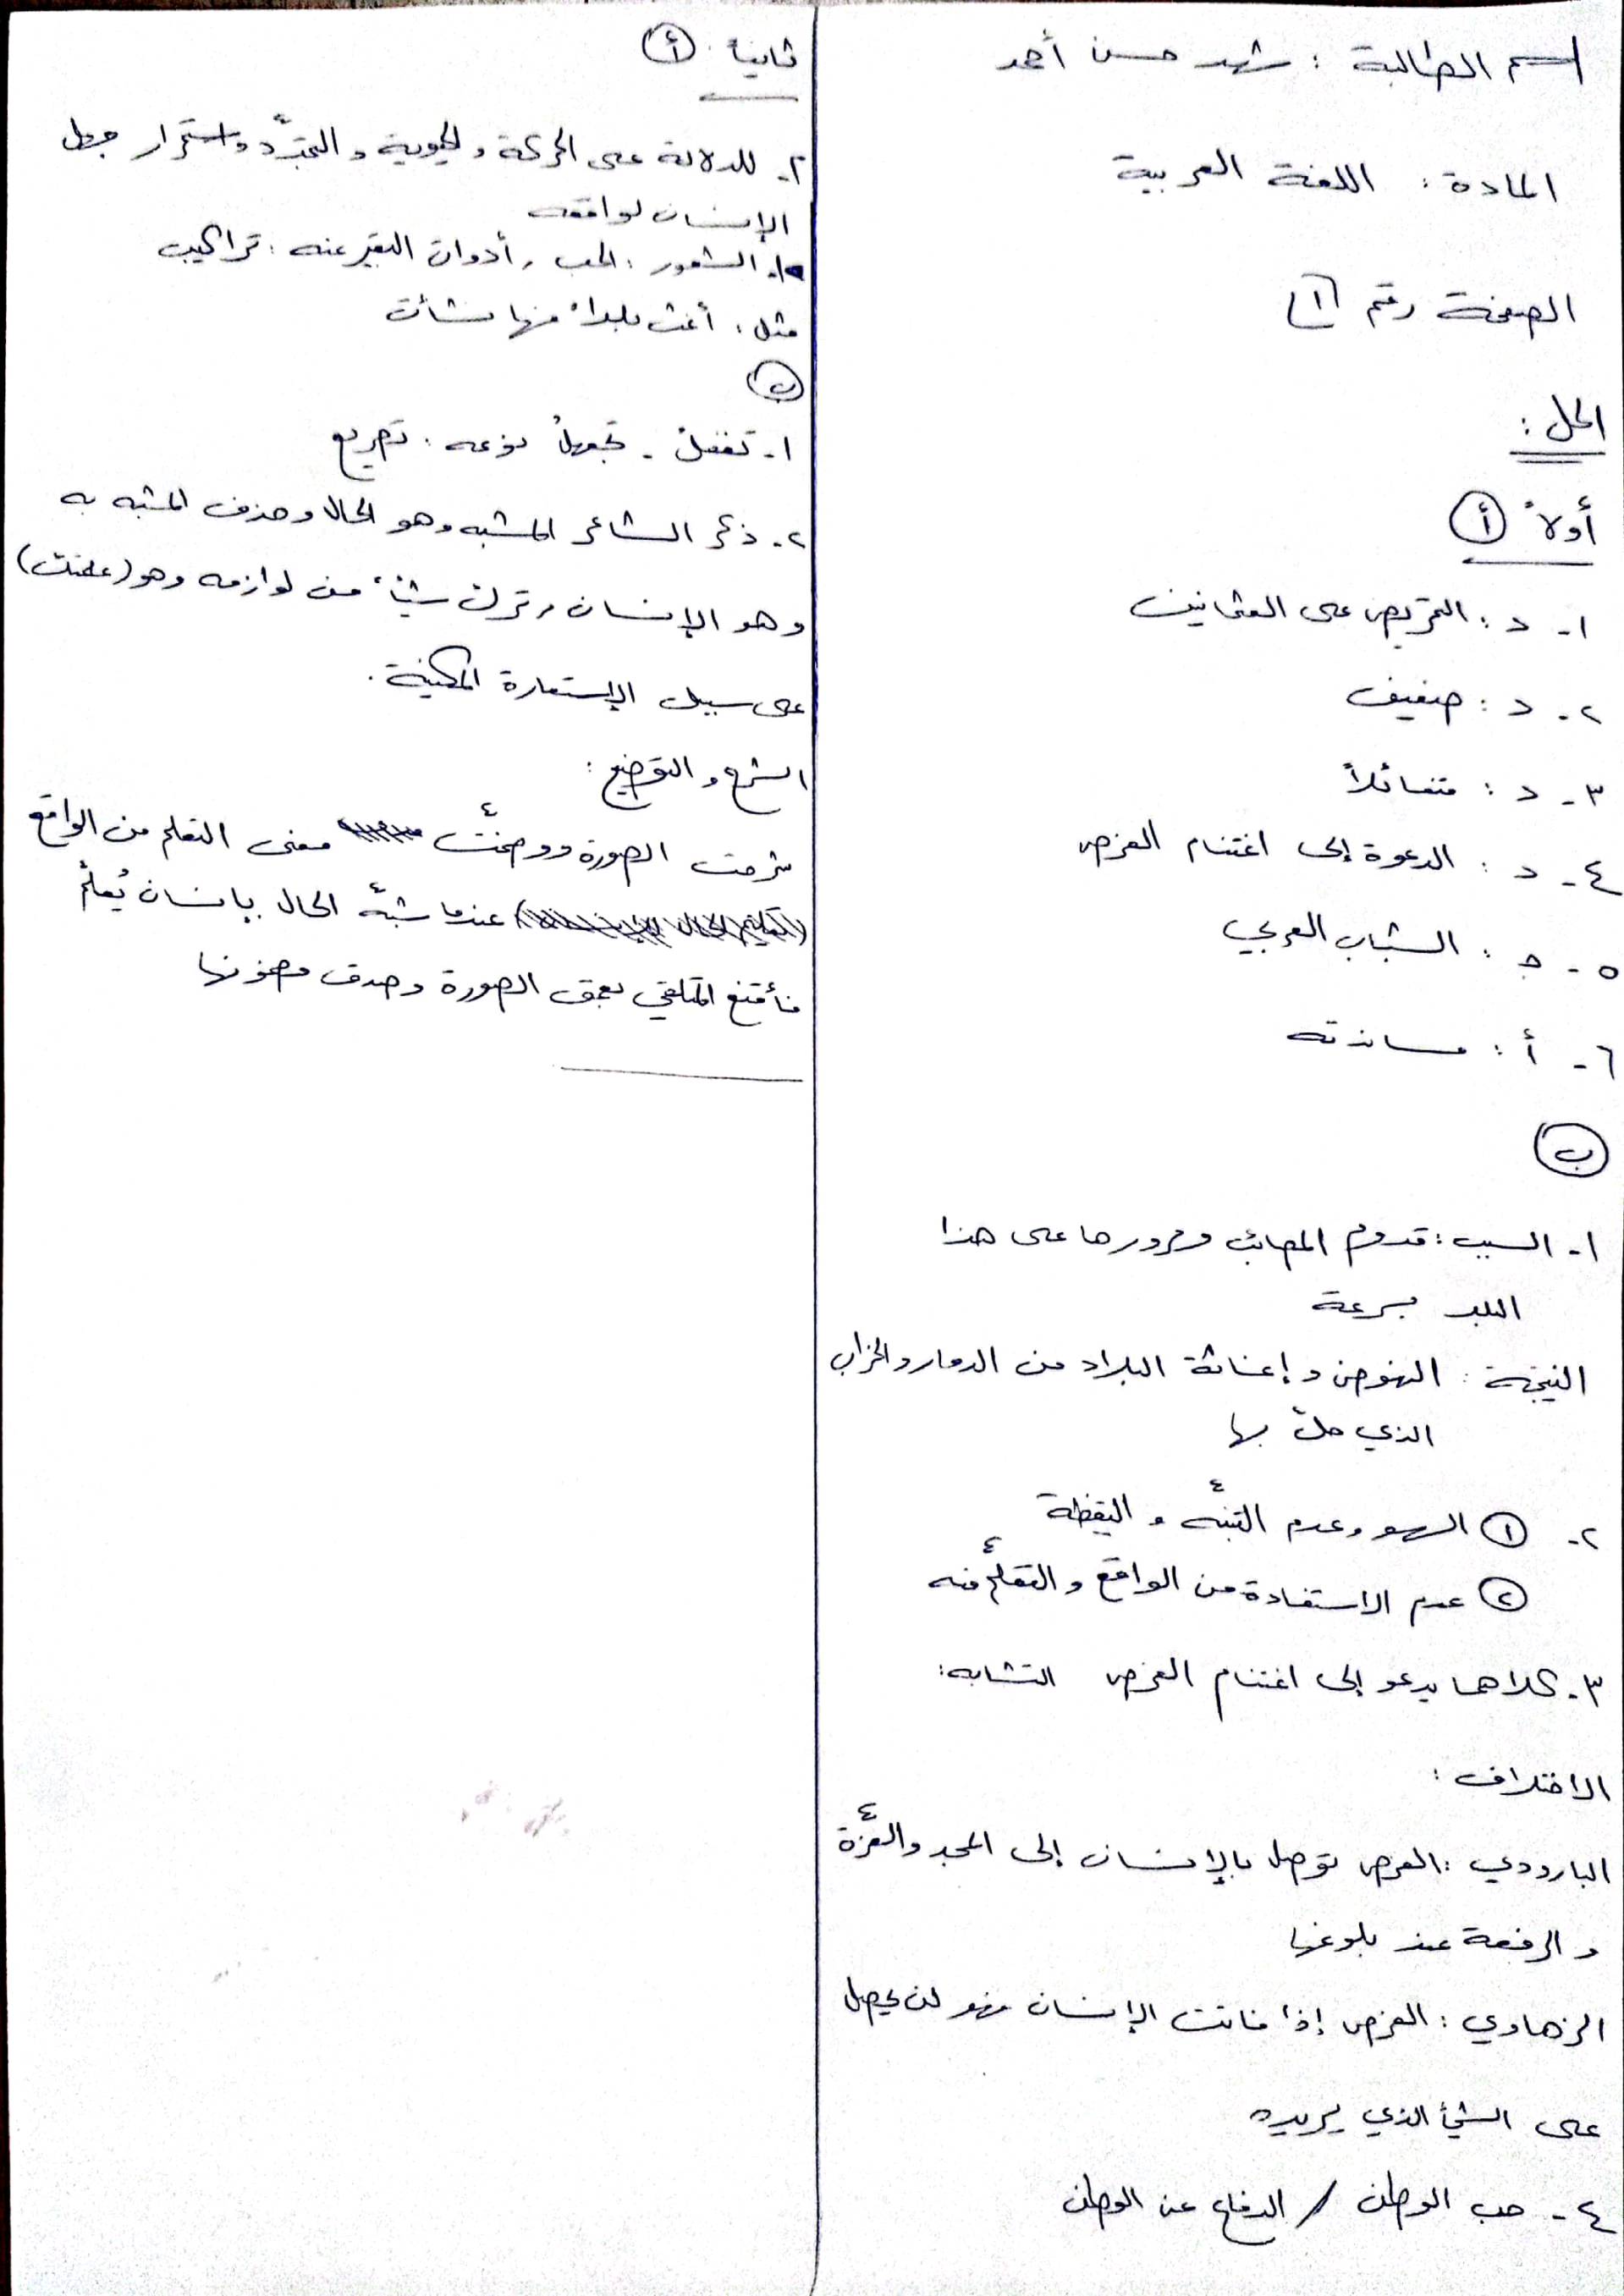 اسم الطالبة : شهد حسن أحمد
المادة : اللغة العربية
الصفحة رقم ١
الحل :
أولاً أ
١- د : التحريض على العثمانيين
٢- د : ضعيف
٣- د : متفائلاً
٤- د : الدعوة إلى اغتنام الفرص
٥- ج : الشباب العربي
٦- أ : مساندته
ب
١- السبب : قدوم المصائب ومرورها على هذا
البلد بسرعة
النتيجة : النهوض وإغاثة البلاد من الدمار والخراب
الذي حلّ بها
٢- ١ السهو وعدم التنبّه و اليقظة
٢ عدم الاستفادة من الواقع و التعلّم منه
٣- كلاهما يدعو إلى اغتنام الفرص التشابه :
الاختلاف :
البارودي : الفرص توصل بالإنسان إلى المجد والعزّة
و الرفعة عند بلوغها
الزهاوي : الفرص إذا فاتت الإنسان فهو لن يحصل
على الشيئ الذي يريده
٤- حب الوطن / الدفاع عن الوطن
ثانياً أ
٢- للدلالة على الحركة و الحيوية و التجدّد واستمرار جهل
الإنسان لواقعه
١- الشعور : الحب , أدوات التعبير عنه : تراكيب
مثل : أغث بلداً منها نشأت
ب
١- تغفلُ - تجهلُ نوعه : تصريع
٢- ذكر الشاعر المشبه وهو الحال وحذف المشبه به
وهو الإنسان وترك شيئاً من لوازمه وهو (علمتك)
على سبيل الإستعارة المكنية .
الشرح و التوضيح :
شرحت الصورة ووضحّت معنى التعلم من الواقع
عندما شبّه الحال بإنسان يُعلّم
فأقنع المتلقي بعمق الصورة وصدق مضمونها